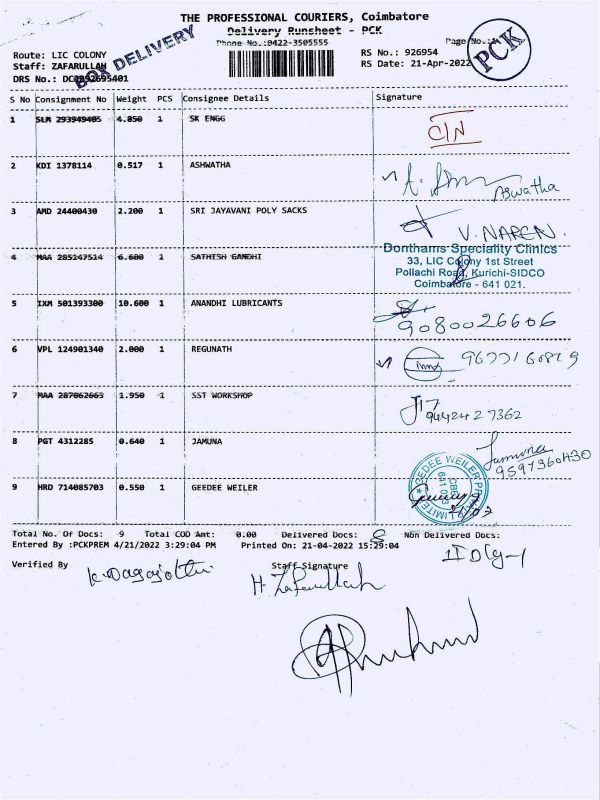 THE PROFESSIONAL COURIERS, Coimbatore
Delivery Runsheet - PCK
Phone No.:0422-3505555
BOX DELIVERY
PCK
Page No.:
Route: LIC COLONY
RS No.: 926954
Staff: ZAFARULLAH
RS Date: 21-Apr-2022
DRS No.:
S No Consignment No Weight PCS Consignee Details Signature
1 SLM 293949405 4.850 1 SK ENGG
CIN
2 KDI 1378114 0.517 1 ASHWATHA
Aswatha
3 AMD 24400430 2.200 1 SRI JAYAVANI POLY SACKS
V. NAREN.
4 MAA 285147514 6.600 1 SATHISH GANDHI
Donthams Speciality Clinics
33, LIC Colony 1st Street
Pollachi Road, Kurichi-SIDCO
Coimbatore - 641 021.
5 IXM 501393300 10.600 1 ANANDHI LUBRICANTS
9080026606
6 VPL 124901340 2.000 1 REGUNATH
7 MAA 287062663 1.950 1 SST WORKSHOP
9442427362
8 PGT 4312285 0.640 1 JAMUNA
Jamuna
9 HRD 714085703 0.550 1 GEEDEE WEILER
GEDEE WEILER
Total No. Of Docs: 9 Total COD Amt: 0.00 Delivered Docs: 8 Non Delivered Docs:
Entered By :PCKPREM 4/21/2022 3:29:04 PM Printed On: 21-04-2022 15:29:04
Verified By Staff Signature
H. Zafarullah